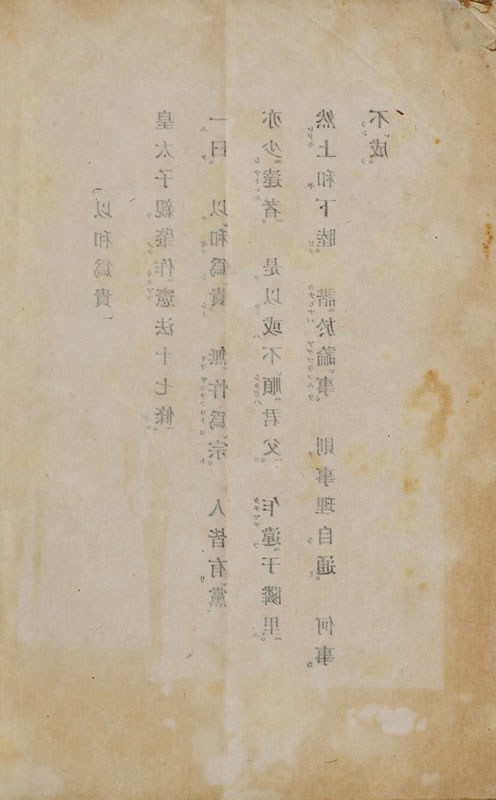 「以和爲貴」
皇太子親肇作憲法十七條。
一曰　以和爲貴　無忤爲宗。　人皆有黨
亦少達者。　是以或不順君父。　乍違于隣里。
然上和下睦。　諧於論事。　則事理自通。　何事
不成。